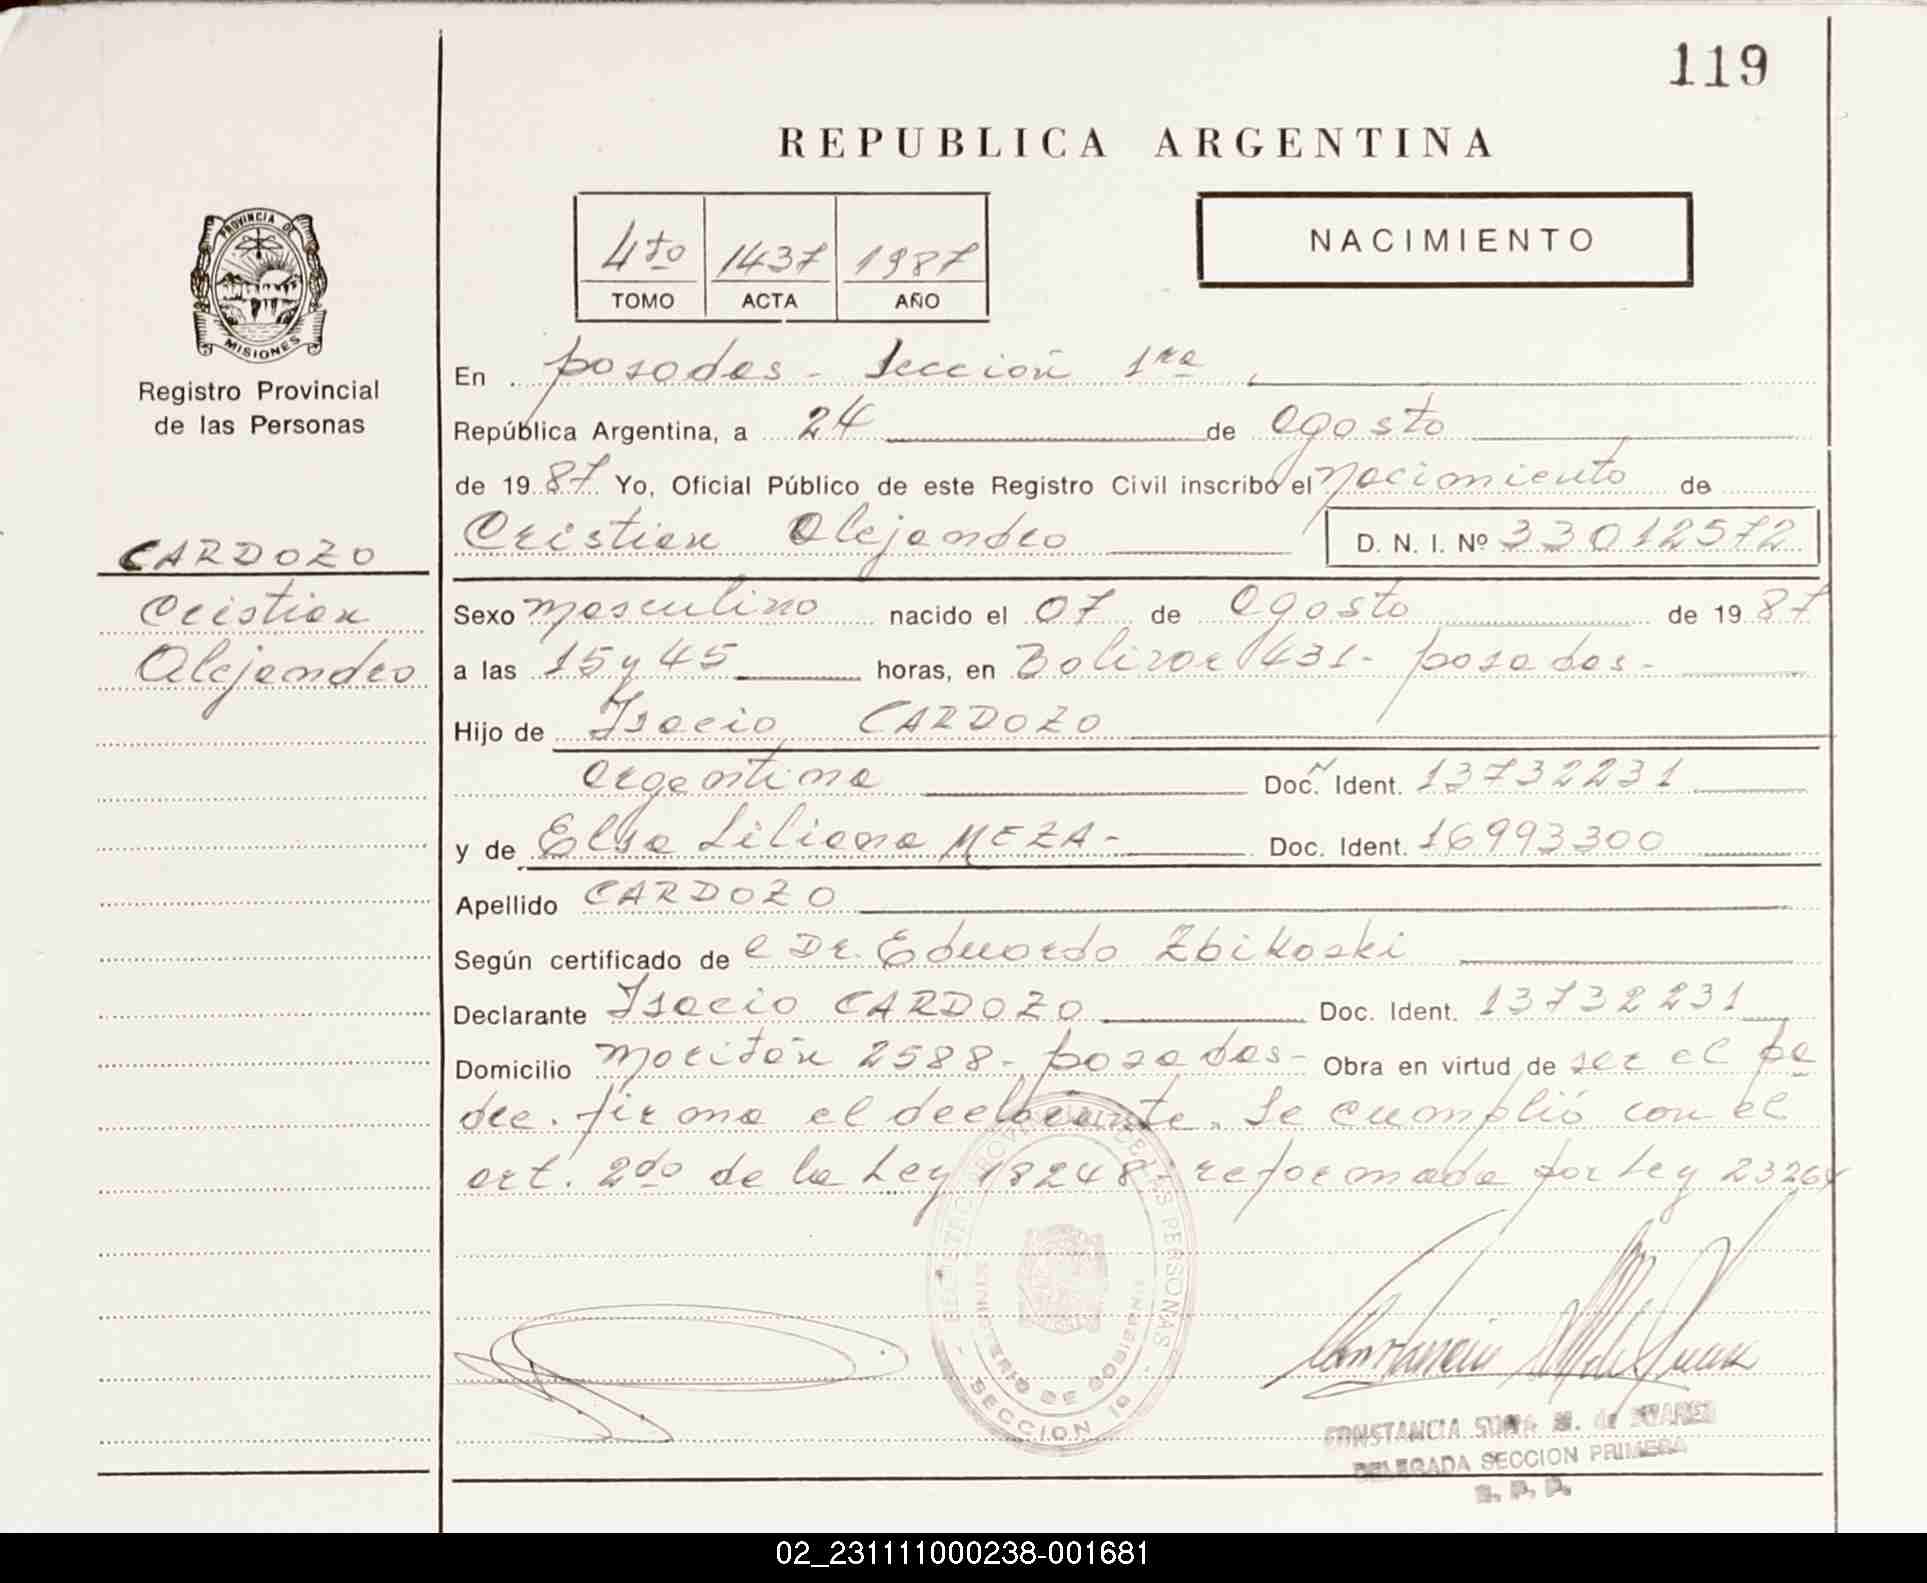 119
REPUBLICA ARGENTINA
4to 1437 1987
TOMO ACTA AÑO
NACIMIENTO
PROVINCIA DE
MISIONES
Registro Provincial
de las Personas
CARDOZO
Cristian
Alejandro
En posadas - Sección 1ra
República Argentina, a 24 de agosto
de 1987 Yo, Oficial Público de este Registro Civil inscribo el nacimiento de
Cristian Alejandro D. N. I. Nº 33012572
Sexo masculino nacido el 07 de agosto de 1987
a las 15 y 45 horas, en Bolivar 431- posadas-
Hijo de Isacio CARDOZO
argentina Doc. Ident. 13732231
y de Elsa Liliana MEZA- Doc. Ident. 16993300
Apellido CARDOZO
Según certificado de e Dr. Eduardo Zbikoski
Declarante Isacio CARDOZO Doc. Ident. 13732231
Domicilio 2588- posadas- Obra en virtud de ser el pa
dre. firma el declarante. Se cumplió con el
art. 2do de la Ley 18248 reformada por Ley 23264
REGISTRO PROVINCIAL DE LAS PERSONAS
MINISTERIO DE GOBIERNO
SECCION 1a
CONSTANCIA M. de SUAREZ
DELEGADA SECCION PRIMERA
R. P. P.
02_231111000238-001681